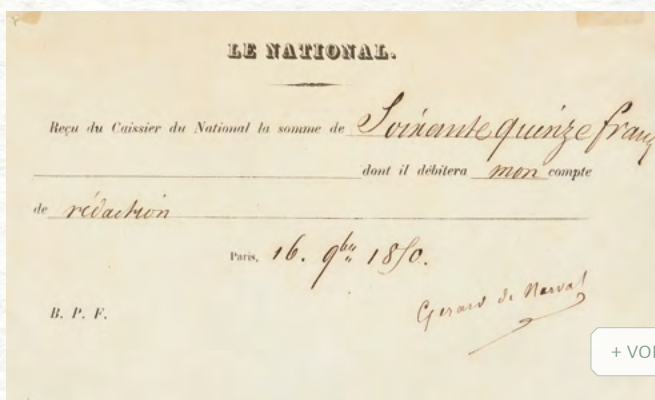 LE NATIONAL.
Reçu du Caissier du National la somme de Soixante quinze francs
dont il débitera mon compte
de rédaction
Paris, 16. 9bre 1850.
Gérard de Nerval
B. P. F.
+ VOI